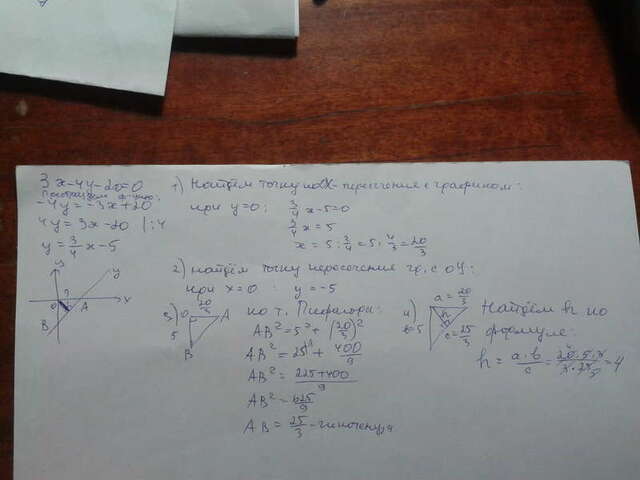 3x-4y-20=0
-4y=-3x+20
4y=3x-20 |:4
y=3/4x-5
y
y
O
A
x
B
1) Найдём точку пересечения с графиком:
при y=0: 3/4x-5=0
3/4x=5
x=5:3/4=5·4/3=20/3
2) Найдём точку пересечения гр. с OY:
при x=0: y=-5
3) O 20/3 A
5
B
по т. Пифагора:
AB²=5²+(20/3)²
AB²=25+400/9
AB²=225+400/9
AB²=625/9
AB=25/3-гипотенуза
4) a=20/3
b=5
h
c=25/3
Найдём h по
формуле:
h=a·b/c=20·5·3/3·25=4